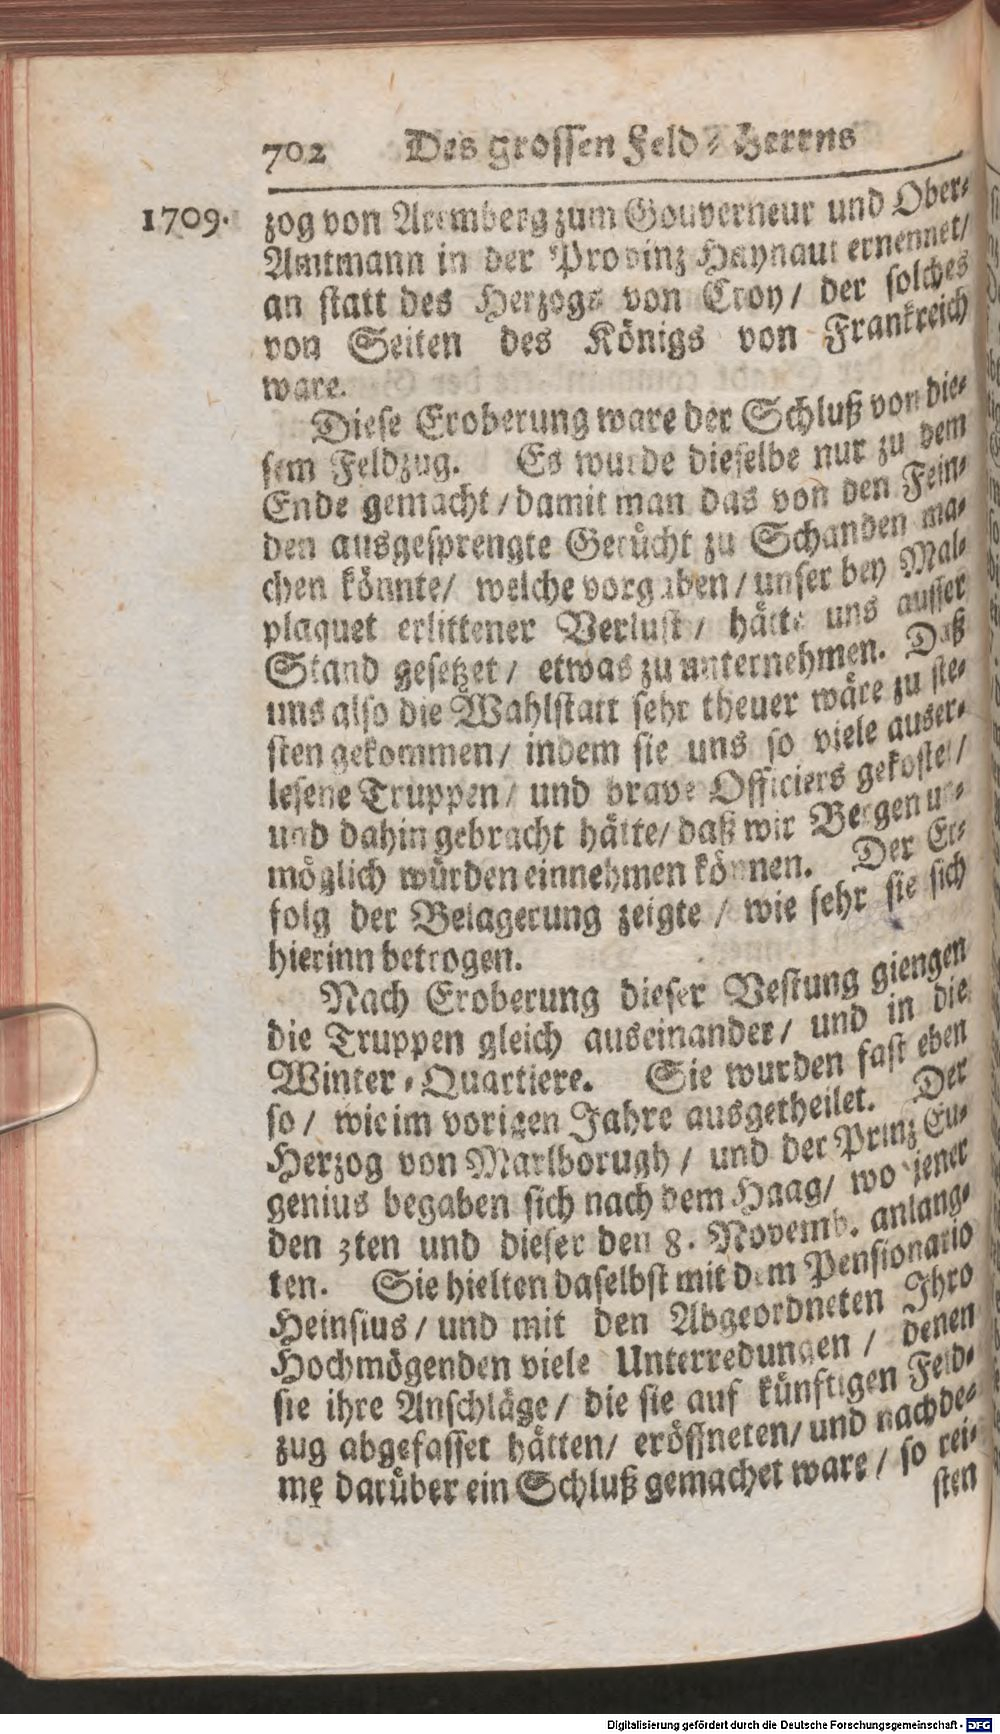 702 Des grossen Feld-Herrns
1709. zog von Aremberg zum Gouverneur und Ober-
Amtmann in der Provinz Haynaut ernennet/
an statt des Herzogs von Croy/ der solches
von Seiten des Königs von Frankreich
ware.
Diese Eroberung ware der Schluß von die-
sem Feldzug. Es wurde dieselbe nur zu dem
Ende gemacht/ damit man das von den Fein-
den ausgesprengte Gerücht zu Schanden ma-
chen könnte/ welche vorgaben/ unser bey Mal-
plaquet erlittener Verlust/ hätte uns ausser
Stand gesetzet/ etwas zu unternehmen. Daß
uns also die Wahlstatt sehr theuer wäre zu ste-
sten gekommen/ indem sie uns so viele auser-
lesene Truppen/ und brave Officiers gekostet/
und dahin gebracht hätte/ daß wir Bergen un-
möglich würden einnehmen können. Der Er-
folg der Belagerung zeigte/ wie sehr sie sich
hierinn betrogen.
Nach Eroberung dieser Vestung giengen
die Truppen gleich auseinander/ und in die
Winter-Quartiere. Sie wurden fast eben
so/ wie im vorigen Jahre ausgetheilet. Der
Herzog von Marlborugh/ und der Prinz Eu-
genius begaben sich nach dem Haag/ wo jener
den 3ten und dieser den 8. Novemb. anlang-
ten. Sie hielten daselbst mit dem Pensionario
Heinsius/ und mit den Abgeordneten Ihro
Hochmögenden viele Unterredungen/ denen
sie ihre Anschläge/ die sie auf künftigen Feld-
zug abgefasset hätten/ eröffneten/ und nachde-
me darüber ein Schluß gemachet ware/ so rei-
sten
Digitalisierung gefördert durch die Deutsche Forschungsgemeinschaft - DFG